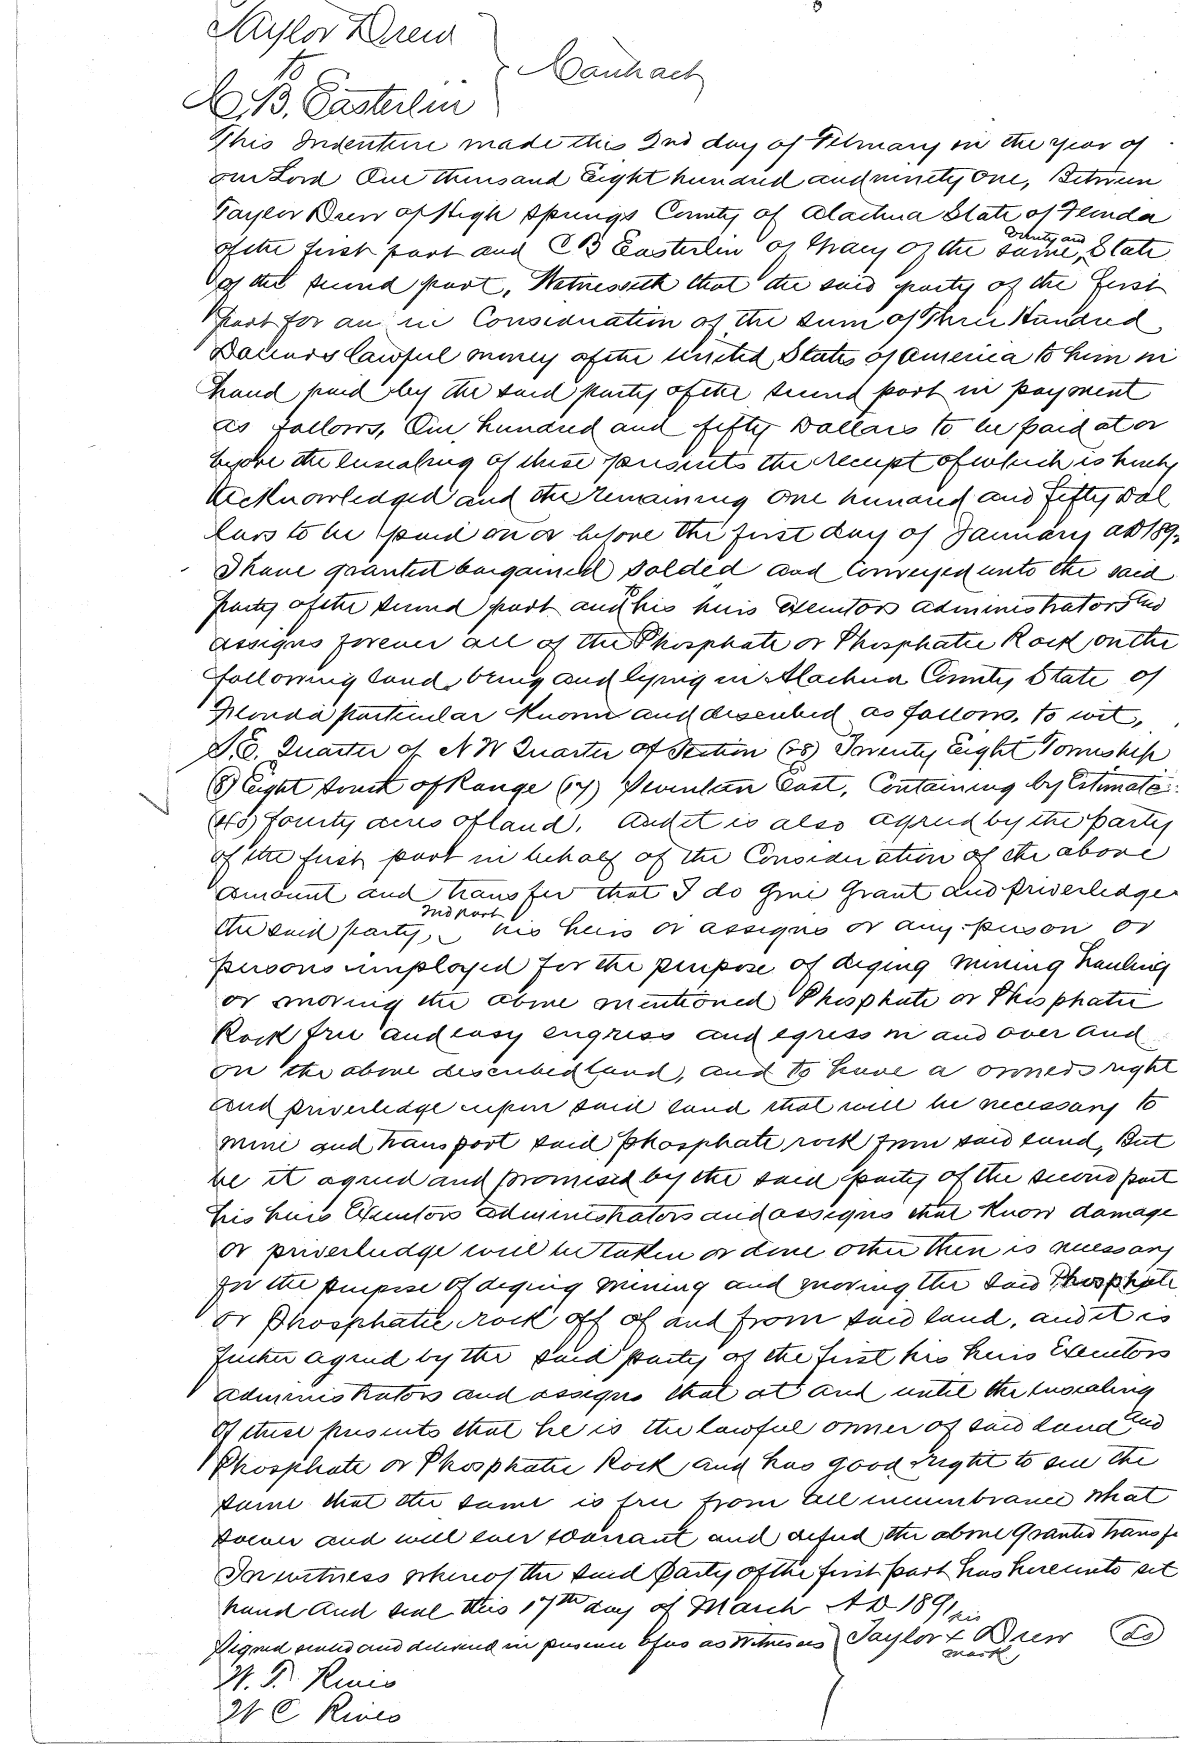 Taylor Drew
to } Contract
C. B. Easterlin
This Indenture made this 2nd day of February in the year of
our Lord One thousand Eight hundred and ninety one, Between
Taylor Drew of High Springs County of Alachua State of Florida
of the first part and C B Easterlin of Tracy of the same, County and State
of the second part, Witnesseth that the said party of the first
part for an in Consideration of the sum of Three Hundred
Dollars lawful money of the united States of america to him in
hand paid by the said party of the second part in payment
as follows, One hundred and fifty Dollars to be paid at or
before the ensealing of these presents the receipt of which is hereby
Acknowledged and the remaining one hundred and fifty Dol
lars to be paid on or before the first day of January AD 189
I have granted bargained solded and Conveyed unto the said
party of the second part and to his heirs Executors administrators and
assigns forever all of the Phosphate or Phosphatic Rock on the
following land, being and lying in Alachua County State of
Florida particular Known and described as follows, to wit,
S.E. Quarter of N W Quarter of Section (28) Twenty Eight Township
(8) Eight South of Range (17) Seventeen East, Containing by Estimate
(40) fourty acres of land. And it is also agreed by the party
of the first part in behalf of the Consideration of the above
amount and transfer that I do give Grant and priverledge
the said party, 2nd part his heirs or assigns or any person or
persons imployed for the purpose of diging mining hauling
or moving the above mentioned Phosphate or Phosphatic
Rock free and easy engress and egress in and over and
on the above described land, and to have a owners right
and priverledge upon said land that will be necessary to
mine and transport said phosphate rock from said land, But
be it agreed and promised by the said party of the second part
his heirs Executors administrators and assigns that Know damage
or priverludge will be taken or done other then is necessary
for the purpose of diging mining and moving the said Phosphate
or Phosphatic rock off of and from said land, and it is
further agreed by the said party of the first his heirs Executors
administrators and assigns that at and until the ensealing
of these presents that he is the lawful owner of said land and
Phosphate or Phosphatic Rock and has good right to sell the
same that the same is free from all incumbrance what
soever and will ever warrant and defend the above Granted transfe
In witness whereof the said Party of the first part has hereunto set
hand And seal this 17th day of March AD 1891
Signed sealed and delivered in presence of us as Witnesses } Taylor his x mark Drew LS
W. T. Rives
W C Rives